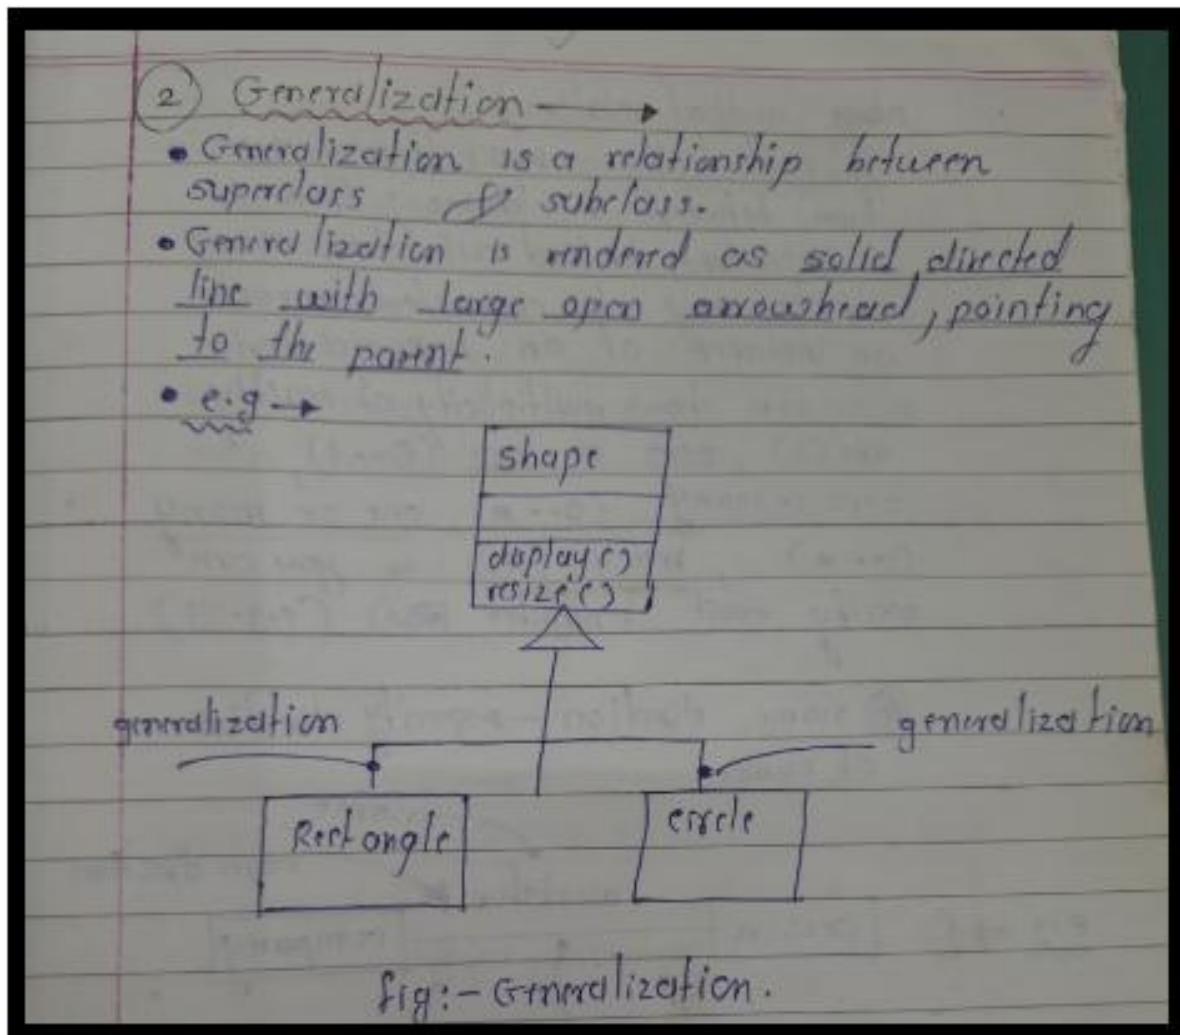 2 Generalization →
• Generalization is a relationship between
superclass & subclass.
• Generalization is rendered as solid, directed
line with large open arrowhead, pointing
to the parent.
• e.g →
shape
display()
resize()
generalization
generalization
Rectangle
circle
fig:- Generalization.